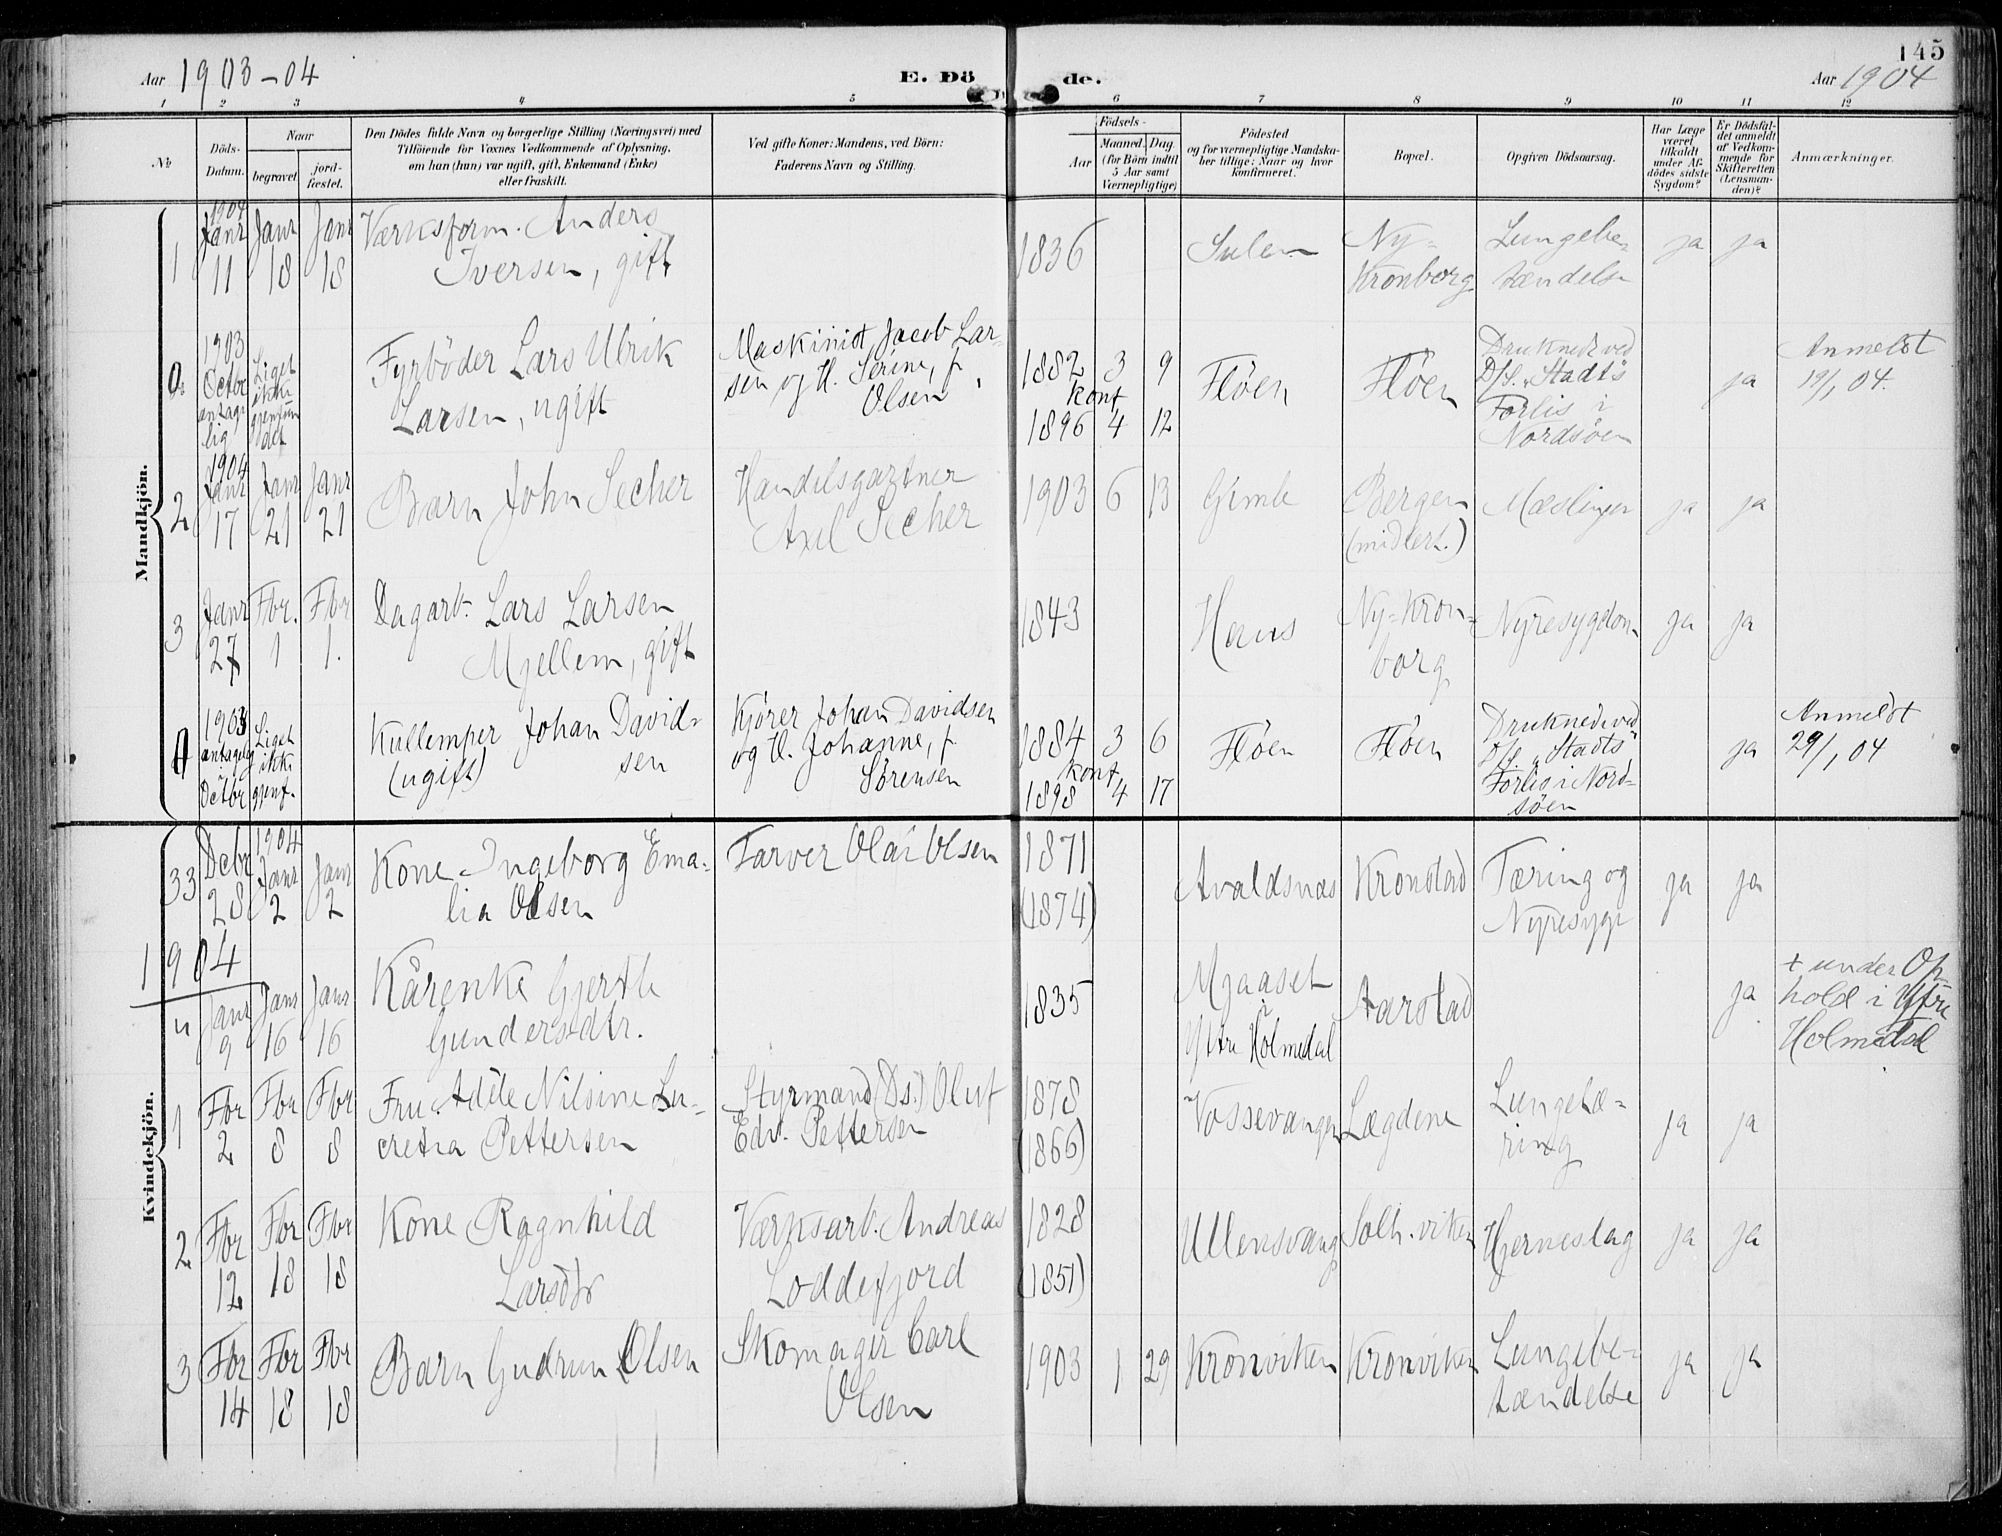 145
Aar 1903-04
E. Dö
de.
Aar 1904
1 2 3 4 5 6 7 8 9 10 11 12
No
Döds-
Datum.
Naar
begravet.
jord-
fæstet.
Den Dödes fulde Navn og borgerlige Stilling (Næringsvei) med
Tilföiende for Voxnes Vedkommende af Oplysning,
om han (hun) var ugift, gift, Enkemand (Enke)
eller fraskilt.
Ved gifte Koner: Mandens, ved Börn:
Faderens Navn og Stilling.
Födsels-
Aar
Maaned. Dag.
(for Börn indtil
5 Aar samt
Værnepligtige)
Födested
og for værnepligtige Mandska-
ber tillige: Naar og hvor
konfirmeret.
Bopæl.
Opgiven Dödsaarsag.
Har Læge
været
tilkaldt
under Af-
dödes sidste
Sygdom?
Er Dödsfal-
det anmeldt
af Vedkom-
mende for
Skifteretten
(Lensman-
den)?
Anmærkninger.
Mandkjön.
1
1904
Janr
11
Janr
18
Janr
18
Værksform. Anders
Iversen, gift
1836
Sulen
Ny-
Kronborg
Lungebe-
tændelse
ja
ja
0.
1903
Octbr
antage-
lig
Liget
ikke
gjenfun
det
Fyrbøder Lars Ulrik
Larsen, ugift
Maskinist Jacob Lar-
sen og H. Serine, f.
Olsen
1882 3 9
Konf.
1896 4 12
Fløen
Fløen
Druknede ved
D/S. "Stadt's
Forlis i
Nordsøen
ja
Anmeldt
19/1 04.
2
1904
Janr
17
Janr
21
Janr
21
Barn John Secher
Handelsgartner
Axel Secher
1903 6 13
Gimle
Bergen
(midlert.)
Mæslinger
ja
ja
3
Janr
27
Fbr.
1
Fbr
1.
Dagarb. Lars Larsen
Mjellem, gift
1843
Haus
Ny-Kron-
borg
Nyresygdom
ja
ja
0
1903
antagelig
Octbr
Liget
ikke
gjenf.
Kullemper Johan David-
sen
(ugift)
Kjører Johan Davidsen
og H. Johanne, f.
Sørensen
1884 3 6
Konf.
1898 4 17
Fløen
Fløen
Druknede ved
D/S. "Stadts"
Forlis i Nord-
søen
ja
Anmeldt
29/1 04
Kvindekjön.
33
Debr
28
1904
Janr
2
Janr
2
Kone Ingeborg Ema-
lia Olsen
Farver Olai Olsen
1871
(1874)
Avaldsnæs
Kronstad
Tæring og
Nyresyge
ja
ja
1904
Janr
9
Janr
16
Janr
16
Kårenke Gjertle
Gundersdtr.
1835
Mjaaset
Ytre Holmedal
Aarstad
ja
+ under Op-
hold i Ytre
Holmedal
1
Fbr
2
Fbr
8
Fbr
8
Fru Adele Nilsine Lu-
cretia Pettersen
Styrmand (Ds.) Oluf
Edv. Pettersen
1878
(1866)
Vossevangen
Lægdene
Lungetæ-
ring
ja
ja
2
Fbr
12
Fbr
18
Fbr
18
Kone Ragnhild
Larsdtr
Værksarb. Andreas
Loddefjord
1828
(1851)
Ullensvang
Solh.viken
Hjerneslag
ja
ja
3
Fbr
14
Fbr
18
Fbr
18
Barn Gudrun Olsen
Skomager Carl
Olsen
1903 1 29
Kronviken
Kronviken
Lungebe-
tændelse
ja
ja